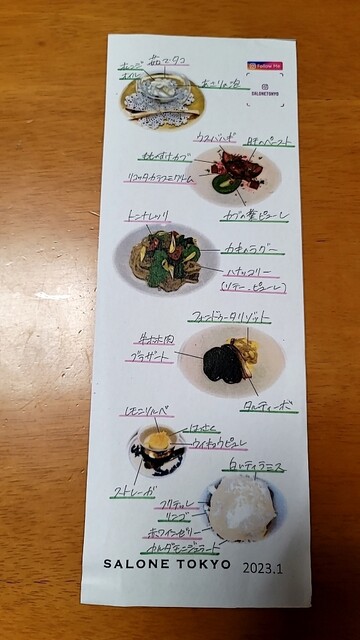 Follow Me
SALONETOKYO
オレンジ
オイル
茹でタコ
あさりの泡
ウスバハギ
肝のペースト
もものすけカブ
リコッタカラスミクリーム
カブの葉ピューレ
トンナレッリ
カキのラグー
ハナッコリー
(ソテー、ピューレ)
フォンドゥータリゾット
牛ホホ肉
ブラザート
タルティーボ
レモンソルベ
はっさく
ウイキョウピュレ
ストレーガ
白いティラミス
リンゴ
ホワイトゼリー
カルダモンジェラート
SALONE TOKYO 2023.1